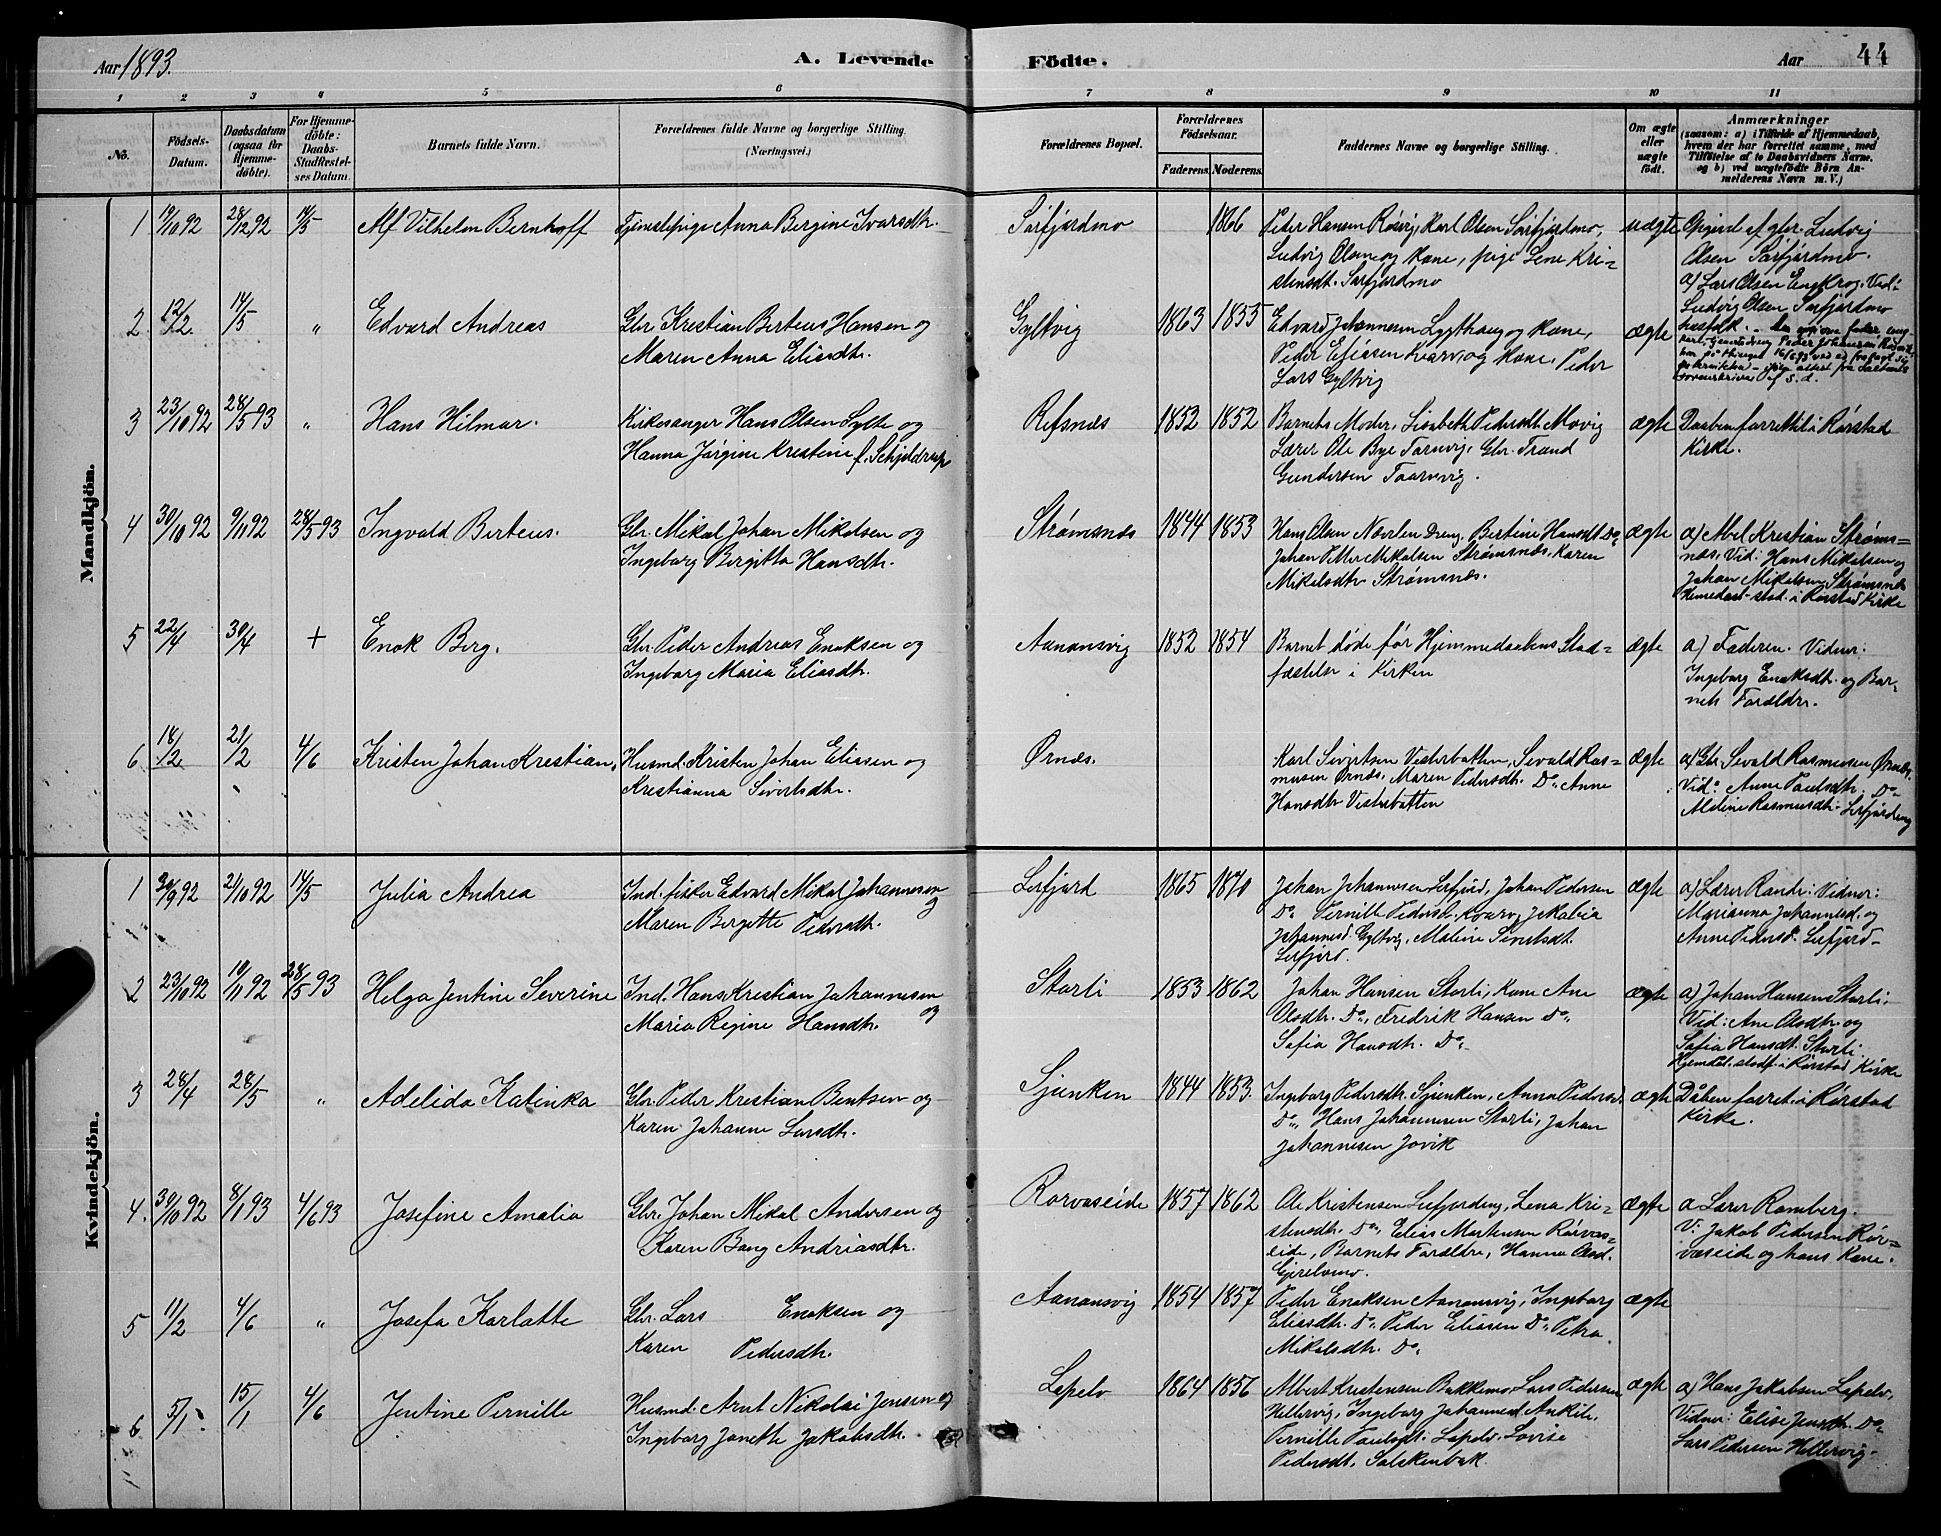 Aar 1893.
A. Levende
Födte.
Aar
44
1 2 3 4 5 6 7 8 9 10 11
No.
Födsels-
Datum.
Daabsdatum
(ogsaa for
Hjemme-
döbte).
For Hjemme-
döbte:
Daabs-
Stadfæstel-
ses Datum.
Barnets fulde Navn.
Forældrenes fulde Navne og borgerlige Stilling.
(Næringsvei.)
Forældrenes Bopæl.
Forældrenes
Födselsaar.
Faderens. Moderens.
Faddernes Navne og borgerlige Stilling.
Om ægte
eller
uægte
födt.
Anmærkninger
(saasom: a) i Tilfælde af Hjemmedaab,
hvem der har forrettet samme, med
Tilföielse af to Daabsvidners Navne,
og b) ved uægtefödte Börn An-
melderens Navn m. V.)
Mandkjön.
1 19/10 92 28/12 92 14/5 Alf Vilhelm Bernhoff
Tjenestepige Anna Bergine Ivarsdtr.
Sørfjordmo 1866
Peder Hansen Røsvig, Karl Olsen Sørfjordmo,
Ludvig Olsen og Kone, pige Lene Kri-
stensdt. Sørfjordmo
uægte
Opgivet af gbr. Ludvig
Olsen Sørfjordmo.
a) Lars Olsen Engkrog. Vid:
Ludvig Olsen Sørfjordmo
2 12/2 14/5 " Edvard Andreas
Gbr. Kristian Berteus Hansen og
Maren Anna Eliasdtr.
Gyltvig 1863 1855
Edvard Johannesen Lygthaug og Kone,
Peder Eliasen Kvarv og Kone, Peder
Lars Gyltvig
ægte
3 23/10 92 28/5 93 " Hans Hilmar.
Kirkesanger Hans Olsen Sylte og
Hanna Jørgine Kristine f. Schjeldrup
Refsnes 1852 1852
Barnets Moder, Lisabeth Pedersdt. Movig
Lærer Ole Bye Tornvig, Gbr. Trond
Gundersen Taarnvig.
ægte
Daaben forrettet i Rørstad
Kirke.
4 30/10 92 9/11 92 28/5 93 Ingvald Berteus.
Gbr. Mikal Johan Mikalsen og
Ingeborg Birgitta Hansdtr.
Strømsnes 1844 1853
Hans Olsen Dreng, Bertine Hansdt. Do
Johan Petter Mikalsen Strømsnes, Karen
Mikalsdtr Strømsnes.
ægte
a) Abel Kristian Strøms=
nes. Vid: Hans Mikalsen og
Johan Mikalsen Strømsnes
Hjemedaab stad. i Rørstad Kirke
5 22/4 30/4 + Enok Berg.
Gbr. Peder Andreas Enoksen og
Ingeborg Maria Eliasdtr.
Aanonsvig 1852 1854
Barnet døde før Hjemmedaabens Stad=
fæstelse i Kirken
ægte
a) Faderen. Vidner:
Ingeborg Enoksdtr. og Bar-
nets Forældre.
6 18/2 21/2 4/6 Kristen Johan Krestian,
Husmd. Kristen Johan Eliasen og
Kristianna Sivertsdtr.
Ørnes.
Karl Sivertsen Vesterbotten, Sevald Ras=
musen Ørnes, Maren Pedersdtr. Do. Anne
Hansdtr Vesterbotten
ægte
a) Gbr. Sevald Rasmusen Ørnes.
Vid: Anne Paulsdtr. Do
Aldine Rasmusdtr. Leifjordeng
Kvindekjön.
1 30/9 92 21/10 92 14/5 Julia Andrea
Ind. fisker Edvard Mikal Johannesen
og
Maren Birgitte Pedersdtr.
Leifjord 1865 1870
Johan Johannesen Leifjord, Johan Pedersen
Do. Pernille Pedersd. Kvarv, Jakobia
Johannesd. Gyltvig, Maline Sivertsdt.
Leifjord.
ægte
a) Lærer Rande. Vidner:
Marianna Johannesd. og
Anne Pedersd. Leifjord-
2 23/10 92 10/11 92 28/5 93 Helga Jentine Severine
Ind. Hans Kristian Johannesen
og
Maria Regine Hansdtr.
Storli 1853 1862
Johan Hansen Storli, Kone Ane
Olsdtr. Do., Fredrik Hansen Do.,
Sofia Hansdtr. Do.
ægte
a) Johan Hansen Storli.
Vid: Ane Olsdtr. og
Sofia Hansdt. Storli.
Hjemdåb. stadf. i Rørstad Kirke
3 28/4 28/5 " Adelida Katinka
Gbr. Peder Kristian Bentsen og
Karen Johanne Larsdtr.
Sjunken 1844 1853.
Ingeborg Pedersdtr. Sjunken, Anna Pedersd.
Do., Hans Johannesen Storli, Johan
Johannesen Jovik
ægte
Dåben forret. i Rørstad
Kirke.
4. 30/10 92 8/1 93 4/6 93 Josefine Amalia
Gbr. Johan Mikal Andersen og
Karen Bang Andriasdtr.
Rørvaseide 1857 1862
Ole Kristensen Leifjordeng, Lena Kri-
stensdtr. Do, Elias Martensen Rørvas=
eide, Barnets Forældre, Hanna Olsd.
Gjerelvmo.
ægte
a Lærer Ramberg.
V: Jakob Pedersen Rør-
vaseide og hans Kone.
5 11/2 4/6 " Josefa Karlotte
Gbr. Lars Enoksen og
Karen Pedersdtr.
Aanonsvig 1854 1857
Peder Enoksen Aanonsvig, Ingeborg
Eliasdtr. Do. Peder Eliasen Do. Petra
Mikalsdtr. Do.
ægte
6 5/1 15/1 4/6 Jentine Pernille
Husmd. Arnt Nikolai Jensen og
Ingeborg Janette Jakobsdtr.
Lapelv 1864 1856
Albert Kristensen Bakkemo, Lars Pedersen
Hellervig, Ingeborg Johannesd. Ankile,
Pernille Paulsdt. Lapelv. Lovise
Pedersdt. Salskenbak
ægte
a) Hans Jakobsen Lapelv,
Vidner: Elise Jensdtr. Do
Lars Pedersen Hellervig-